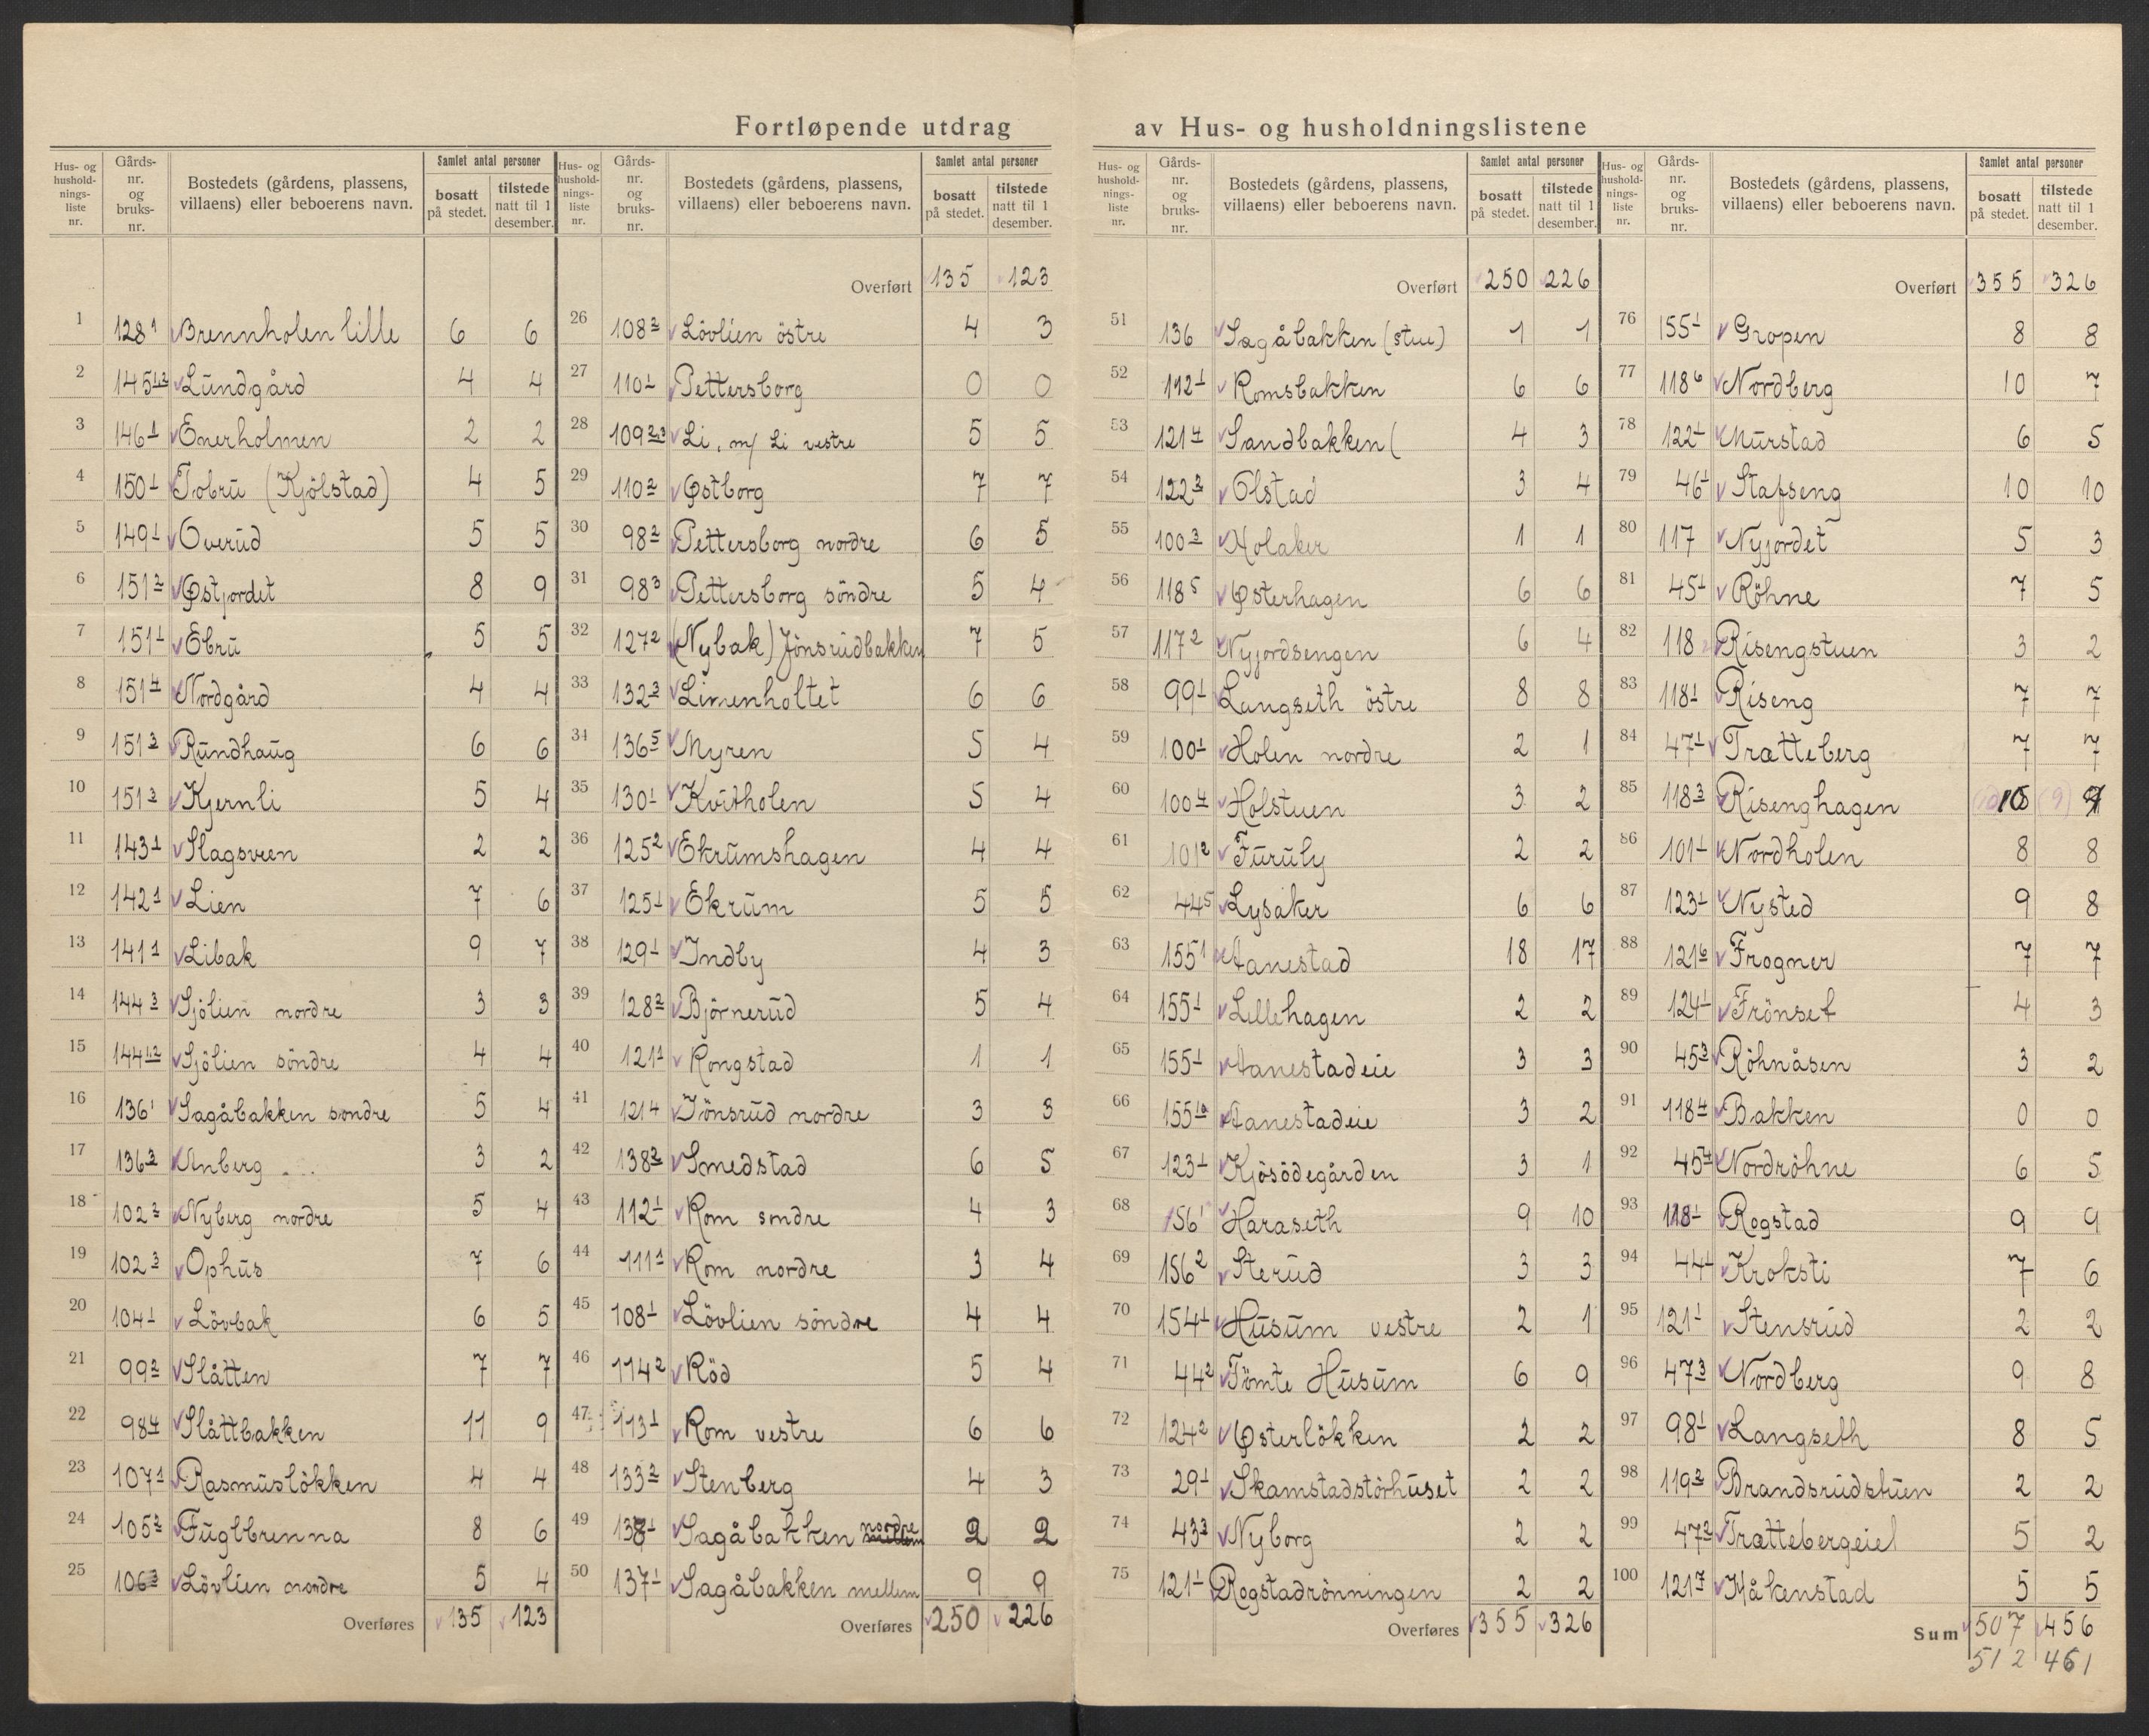 Fortløpende utdrag av Hus- og husholdningslistene
Hus- og husholdnings-liste nr. | Gårds-nr. og bruks-nr. | Bostedets (gårdens, plassens, villaens) eller beboerens navn. | Samlet antal personer bosatt på stedet. | tilstede natt til 1 desember.
1 128 1 Brennholen lille 6 6
2 145 1,2 Lundgård 4 4
3 146 1 Enerholmen 2 2
4 150 1 Tobru (Kjölstad) 4 5
5 149 1 Överud 5 5
6 151 2 Østjordet 8 9
7 151 1 Ebru 5 5
8 151 4 Nordgård 4 4
9 151 3 Rundhaug 6 6
10 151 3 Kjernli 5 4
11 143 1 Slagsveen 2 2
12 142 1 Lien 7 6
13 141 1 Libak 9 7
14 144 3 Sjölien nordre 3 3
15 144 1,2 Sjölien söndre 4 4
16 136 1 Sagåbakken söndre 5 4
17 136 3 Anberg 3 2
18 102 2 Nyberg nordre 5 4
19 102 3 Ophus 7 6
20 104 1 Lövbak 6 5
21 99 2 Slåtten 7 7
22 98 4 Slåttbakken 11 9
23 107 1 Rasmuslökken 4 4
24 105 2 Fuglbrenna 8 6
25 106 3 Lövlien nordre 5 4
Overføres 135 123
Hus- og husholdnings-liste nr. | Gårds-nr. og bruks-nr. | Bostedets (gårdens, plassens, villaens) eller beboerens navn. | Samlet antal personer bosatt på stedet. | tilstede natt til 1 desember.
Overført 135 123
26 108 2 Lövlien östre 4 3
27 110 1 Pettersborg 0 0
28 109 2,3 Li, m/ Li vestre 5 5
29 110 2 Østborg 7 7
30 98 2 Pettersborg nordre 6 5
31 98 3 Pettersborg söndre 5 4
32 127 2 (Nybak) Jönsrudbakken 7 5
33 132 3 Linenholtet 6 6
34 136 5 Myren 5 4
35 130 1 Kvitholen 5 4
36 125 2 Ekrumshagen 4 4
37 125 1 Ekrum 5 5
38 129 1 Indby 4 3
39 128 2 Björnerud 5 4
40 121 1 Rongstad 1 1
41 121 4 Jönsrud nordre 3 3
42 138 2 Smedstad 6 5
43 112 1 Rom sndre 4 3
44 111 1 Rom nordre 3 4
45 108 1 Lövlien söndre 4 4
46 114 2 Röd 5 4
47 113 1 Rom vestre 6 6
48 133 2 Stenberg 4 3
49 138 1 Sagåbakken nordre 2 2
50 137 1 Sagåbakken mellem 9 9
Overføres 250 226
Hus- og husholdnings-liste nr. | Gårds-nr. og bruks-nr. | Bostedets (gårdens, plassens, villaens) eller beboerens navn. | Samlet antal personer bosatt på stedet. | tilstede natt til 1 desember.
Overført 250 226
51 136 Sagåbakken (stue) 1 1
52 112 1 Romsbakken 6 6
53 121 4 Sandbakken ( 4 3
54 122 3 Olstad 3 4
55 100 3 Holaker 1 1
56 118 5 Østerhagen 6 6
57 117 2 Nyjordsengen 6 4
58 99 1 Langseth östre 8 8
59 100 1 Holen nordre 2 1
60 100 4 Holstuen 3 2
61 101 2 Furuly 2 2
62 44 5 Lysaker 6 6
63 155 1 Aanestad 18 17
64 155 1 Lillehagen 2 2
65 155 1 Aanestadeie 3 3
66 155 10 Aanestadeie 3 2
67 123 1 Kjösödegården 3 1
68 156 1 Haraseth 9 10
69 156 2 Sterud 3 3
70 154 1 Husum vestre 2 1
71 44 2 Tömte Husum 6 9
72 124 2 Østerlökken 2 2
73 29 1 Skamstadstörhuset 2 2
74 43 3 Nyborg 2 2
75 121 1 Rogstadrönningen 2 2
Overføres 355 326
Hus- og husholdnings-liste nr. | Gårds-nr. og bruks-nr. | Bostedets (gårdens, plassens, villaens) eller beboerens navn. | Samlet antal personer bosatt på stedet. | tilstede natt til 1 desember.
Overført 355 326
76 155 1 Gropen 8 8
77 118 6 Nordberg 10 7
78 122 1 Murstad 6 5
79 46 1 Stafseng 10 10
80 117 Nyjordet 5 3
81 45 1 Röhne 7 5
82 118 Risengstuen 3 2
83 118 1 Riseng 7 7
84 47 1 Trætteberg 7 7
85 118 3 Risenghagen (10) 10 (9) 9
86 101 1 Nordholen 8 8
87 123 1 Nysted 9 8
88 121 6 Frogner 7 7
89 124 1 Frönset 4 3
90 45 3 Röhnåsen 3 2
91 118 4 Bakken 0 0
92 45 4 Nordröhne 6 5
93 118 1 Rogstad 9 9
94 44 1 Kroksti 7 6
95 121 1 Stensrud 2 2
96 47 3 Nordberg 9 8
97 98 1 Langseth 8 5
98 119 2 Brandsrudstuen 2 2
99 47 2 Trættebergeiel 5 2
100 121 7 Håkenstad 5 5
Sum 507 456
512 461